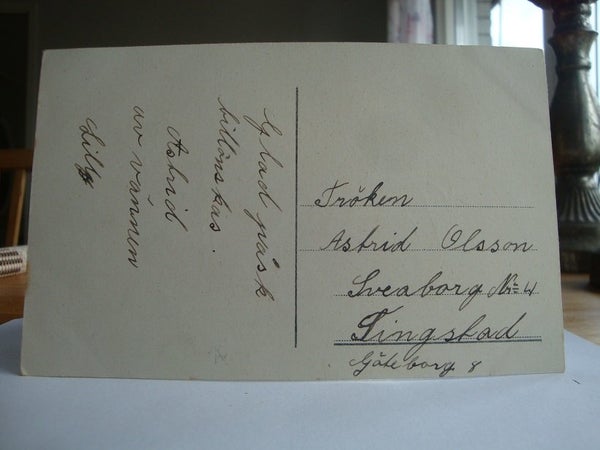 Glad påsk
tillönskas.
Astrid
av vännen
Lilly
Fröken
Astrid Olsson
Sveaborg No 4
Tingstad
Göteborg 8